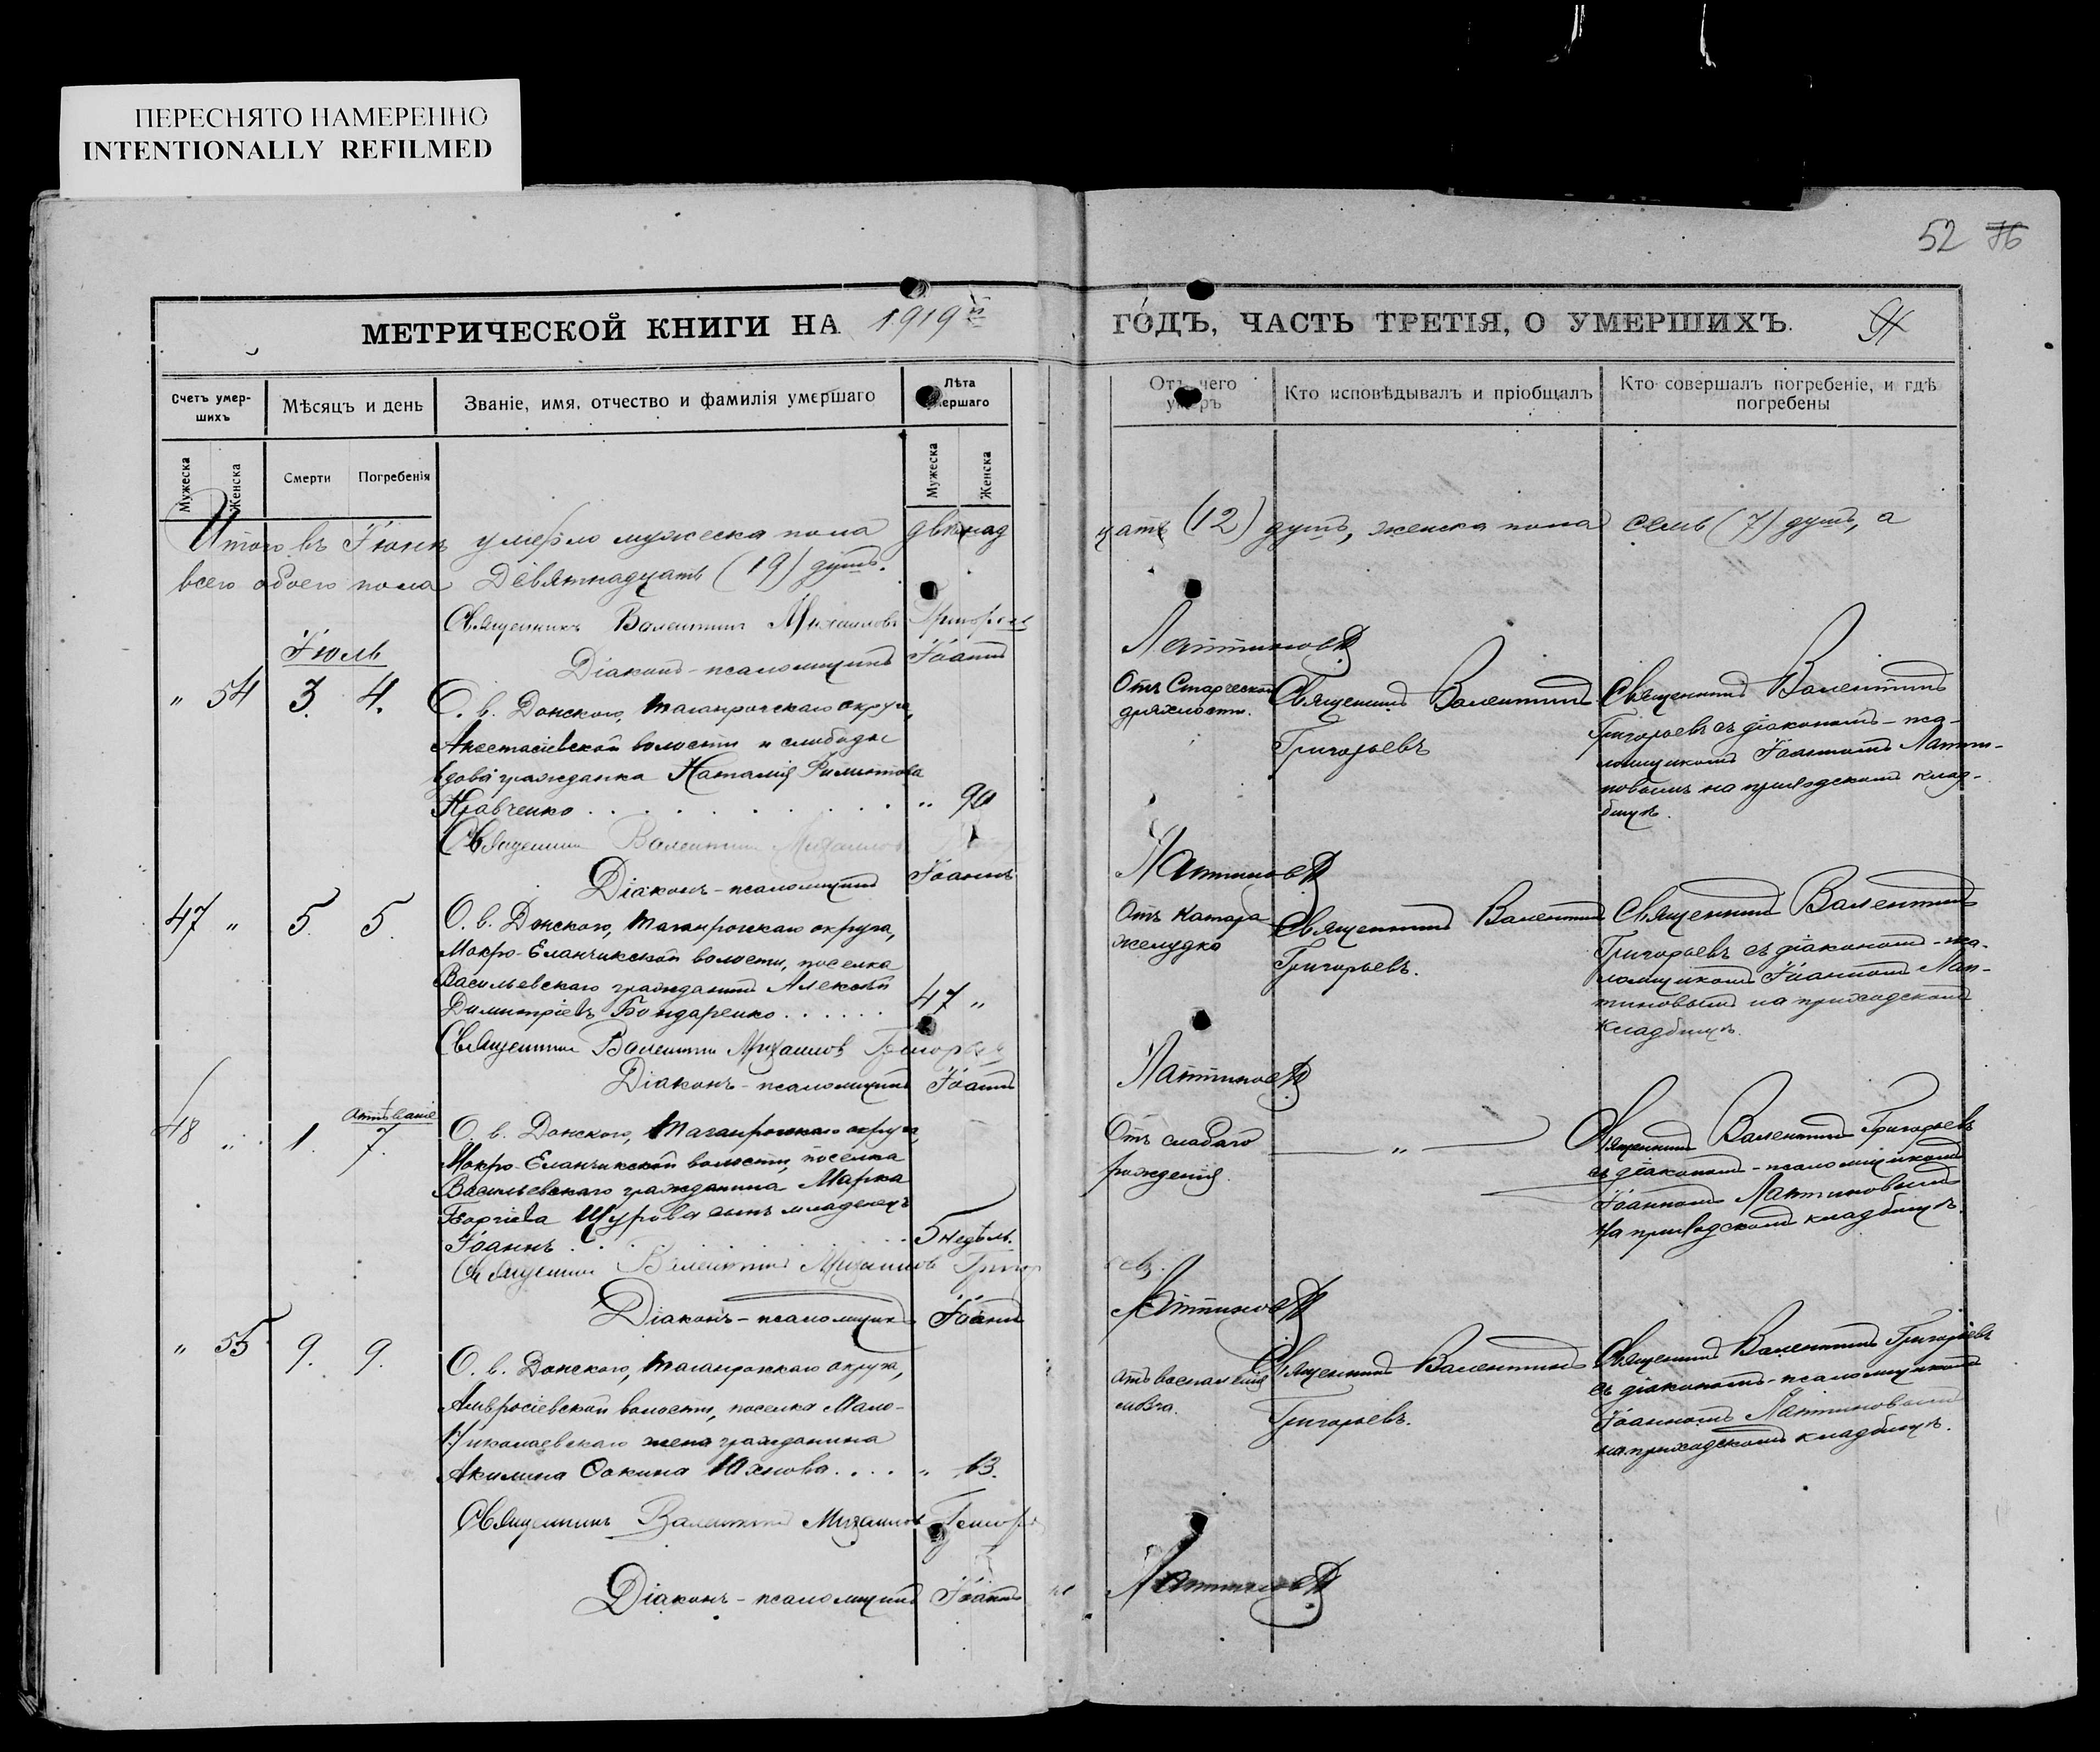 ПЕРЕСНЯТО НАМЕРЕННО
INTENTIONALLY REFILMED
52 76
МЕТРИЧЕСКОЙ КНИГИ НА 1919 й
ГОДЪ, ЧАСТЬ ТРЕТІЯ, О УМЕРШИХЪ.
Счетъ умер-
шихъ
Мѣсяцъ и день
Званіе, имя, отчество и фамилія умєршаго
Лѣта
умершаго
Отъ чего
умеръ
Кто исповѣдывалъ и пріобщалъ
Кто совершалъ погребеніе, и гдѣ
погребены
Мужеска
Женска
Смерти
Погребенія
Мужеска
Женска
Итого въ Іюнѣ умерло мужеска пола двѣнад
цать (12) душъ, женска пола семь (7) душъ, а
всего обоего пола Девятнадцать (19) душъ.
Священникъ Валентинъ Михаиловъ Григорьевъ
Діаконъ-псаломщикъ Іоаннъ Лаптиновъ
Іюль
" 54 3. 4.
О. в. Донского, Таганрогскаго округа,
Анастасіевской волости и слободы
вдова гражданка Наталія
Кравченко . . . . . . . . " 90
Отъ Старческой
дряхлости.
Священникъ Валентинъ
Григорьевъ
Священникъ Валентинъ
Григорьевъ съ діакономъ-пса-
ломщикомъ Іоанномъ Лапти-
новымъ на приходскомъ клад-
бищѣ.
Священникъ Валентинъ Михаиловъ
Діаконъ-псаломщикъ Іоаннъ Лаптиновъ
47 " 5. 5.
О. в. Донского, Таганрогскаго округа,
Мокро-Еланчикской волости, поселка
Васильевскаго гражданинъ Алексѣй
Димитріевъ Бондаренко . . . . . . 47 "
Отъ Катара
желудка
Священникъ Валентинъ
Григорьевъ.
Священникъ Валентинъ
Григорьевъ съ діакономъ-пса-
ломщикомъ Іоанномъ Лап-
тиновымъ на приходскомъ
кладбищѣ.
Священникъ Валентинъ Михаиловъ Григорьевъ
Діаконъ-псаломщикъ Іоаннъ Лаптиновъ
48 " 1. Отпѣваніе 7.
О. в. Донского, Таганрогскаго округа,
Мокро-Еланчикской волости, поселка
Васильевскаго гражданина Марка
Георгіева Щурова сынъ младенецъ
Іоаннъ . . . . . . 5 недѣль.
Отъ слабаго
рожденія.
"
Священникъ Валентинъ Григорьевъ
съ діакономъ-псаломщикомъ
Іоанномъ Лаптиновымъ
на приходскомъ кладбищѣ.
Священникъ Валентинъ Михаиловъ Григорьевъ.
Діаконъ-псаломщикъ Іоаннъ Лаптиновъ
" 55 9. 9.
О. в. Донского, Таганрогскаго округа,
Амвросіевской волости, поселка Мало-
Николаевскаго жена гражданина
Акилина Юхнова . . . . "
отъ воспаленія
мозга.
Священникъ Валентинъ
Григорьевъ.
Священникъ Валентинъ Григорьевъ
съ діакономъ-псаломщикомъ
Іоанномъ Лаптиновымъ
на приходскомъ кладбищѣ.
Священникъ Валентинъ Михаиловъ Григорьевъ
Діаконъ-псаломщикъ Іоаннъ Лаптиновъ